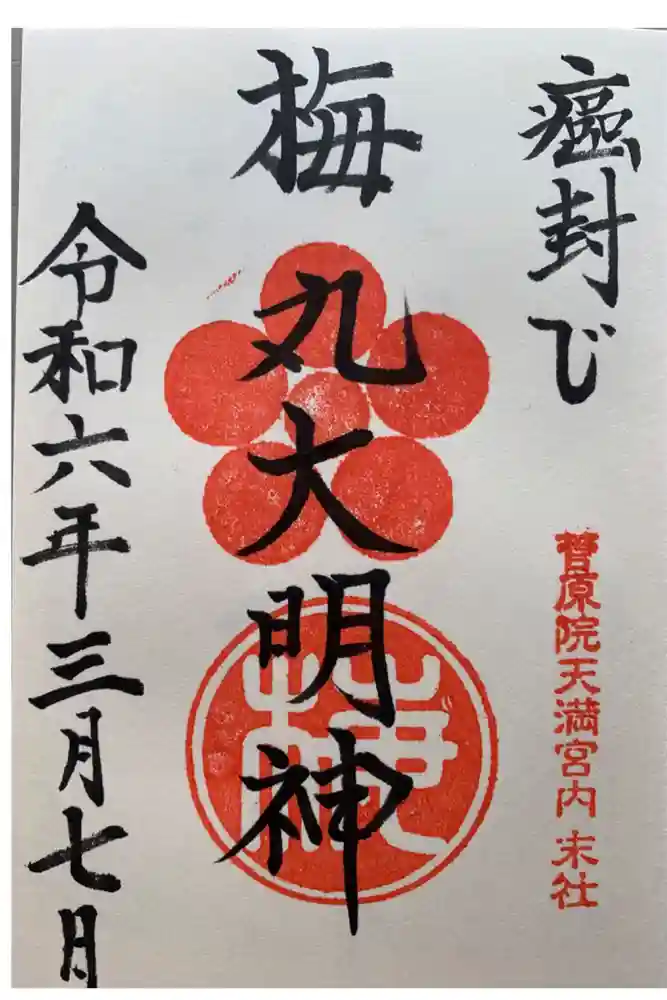 癌封じ
菅原院天満宮内 末社
梅丸大明神
梅
令和六年三月七日